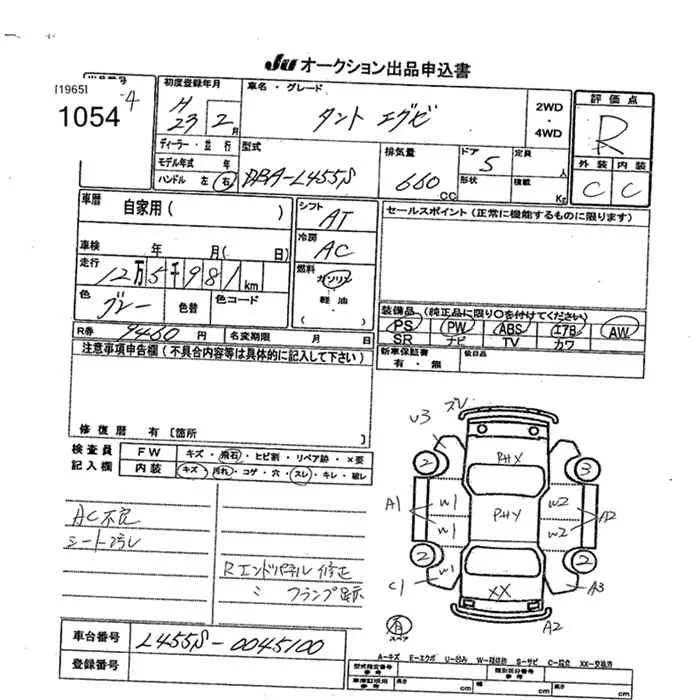 Ju オークション出品申込書
[1965]
1054
初度登録年月
H 23 2月
車名・グレード
タント エグゼ
2WD
・
4WD
評価点
R
ディーラー・並行
モデル年式 年
ハンドル 左 右
型式
DBA-L455S
排気量
660 CC
ドア
5
形状
定員
人
積載
Kg
外装 内装
C C
車歴
自家用( )
シフト
AT
セールスポイント(正常に機能するものに限ります)
車検 年 月( 日)
冷房
AC
走行
12万5千981km
燃料
ガソリン
軽油
( )
色
グレー
色替
色コード
装備品(純正品に限り○を付けてください)
PS PW ABS エアB AW
SR ナビ TV カワ
R券 9460円
名変期限 月 日
新車保証書
有・無
後日品
注意事項申告欄(不具合内容等は具体的に記入して下さい)
修復歴 有〔箇所 〕
検査員
記入欄
FW
キズ・飛石・ヒビ割・リペア跡・×要
内装
キズ・汚れ・コゲ・穴・スレ・キレ・破レ
AC不良
シート汚レ
Rエンドパネル修正
〃 クランプ跡
U3 ズレ
2
PHX
3
A1
W1
W1
PHY
W2
W2
A2
2
W1
2
C1
XX
A3
有
スペア
A2
車台番号
L455S-0045100
登録番号
A-キズ E-エクボ U-凹み W-補修跡 S-サビ C-腐食 XX-交換済
型式指定番号
参考
類別区分番号
参考
車庫証明用
参考
長さ cm
cm
cm